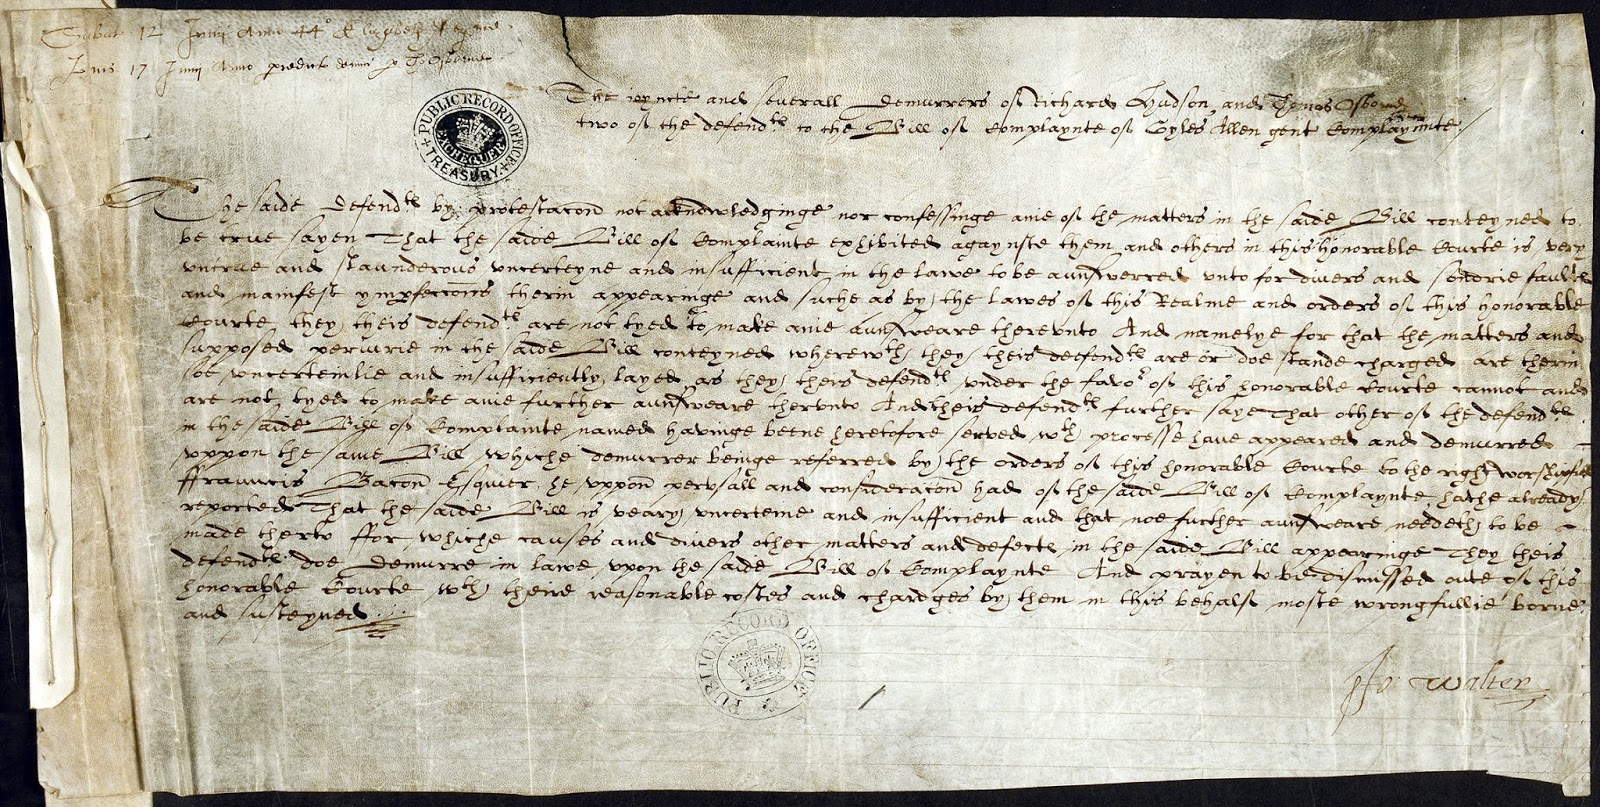 Sabat 12 Junij Anno 44o Elizabeth Regine
17 Junij Anno predict Tho Osborne
The ioyncte and severall demurrers of Richard Hudson and Thomas Osborne
two of the defendts to the Bill of Complaynte of Gyles Allen gent Complaynante
PUBLIC RECORD OFFICE
EXCHEQUER
TREASURY
The saide defendts by protestacon not acknowledginge nor confessinge anie of the matters in the saide Bill conteyned to
be true sayen That the saide Bill of Complainte exhibited agaynste them and others in this honorable Courte is very
untrue and slaunderous uncerteyne and insufficient in the lawe to be aunswerred unto for divers and sondrie faultes
and manifest ymperfeccons therin appearinge and suche as by the lawes of this Realme and orders of this honorable
Courte they theis defendts are not tyed to make anie aunsweare therunto And namelye for that the matters and
supposed periurie in the saide Bill conteyned wherewth they theis deefendts are or doe stande charged are therin
soe uncerteinlie and insufficiently layed as they theis defendts under the favor of this honorable Courte cannot and
are not tyed to make anie further aunsweare therunto And theis defendts further saye That other of the defendts
in the saide Bill of Complainte named havinge beene heretofore served wth processe have appeared and demurred
uppon the same Bill whiche demurrer beinge referred by the orders of this honorable Courte to the right worshipfull
ffrauncis Bacon Esquier he uppon perusall and consideracon had of the saide Bill of Complaynte hathe already
reported That the saide Bill is veary uncerteine and insufficient and that noe further aunsweare needeth to be
made therto ffor whiche causes and divers other matters and defects in the saide Bill appearinge They theis
defendts doe demurre in lawe upon the saide Bill of Complaynte And prayen to be dismissed oute of this
honorable Courte wth theire reasonable costes and chardges by them in this behalf moste wrongfullie borne
and susteyned
PUBLIC RECORD OFFICE
Jo: Walter